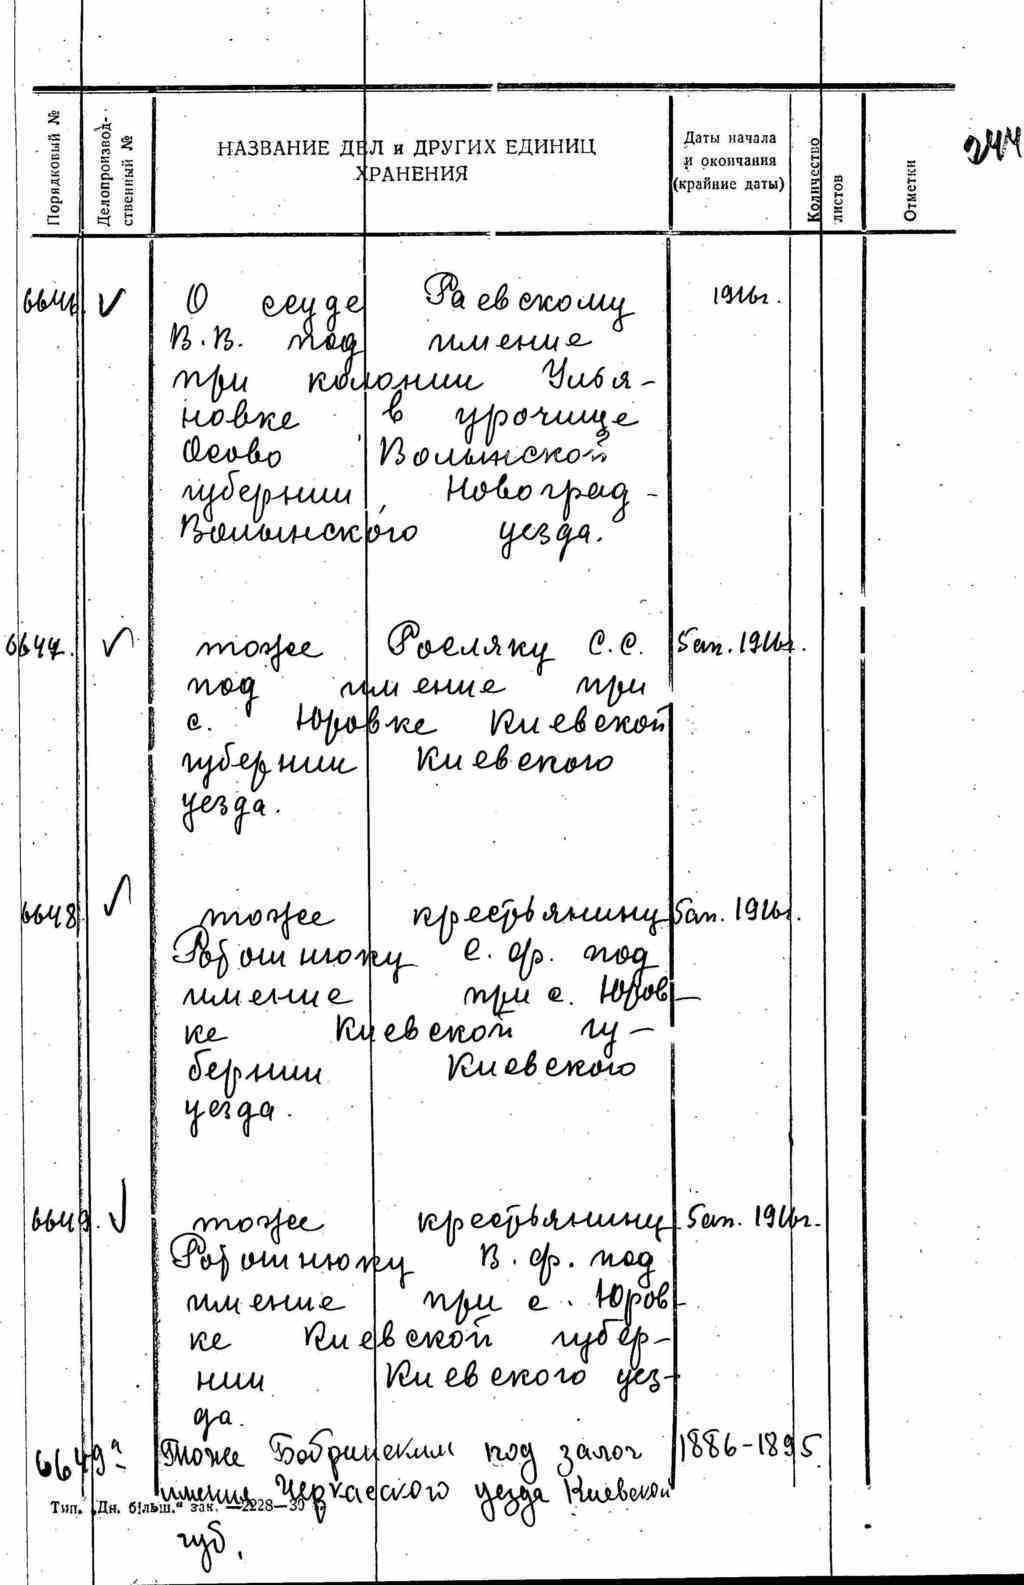 244
Порядковый №
Делопроизвод-
ственный №
НАЗВАНИЕ ДЕЛ и ДРУГИХ ЕДИНИЦ
ХРАНЕНИЯ
Даты начала
и окончания
(крайние даты)
Количество
листов
Отметки
6646 О ссуде Раевскому 1916г.
В.В. под имение
при колонии Улья-
новке в урочище
Осово Волынской
губернии Новоград-
Волынского уезда.
6647. тоже Росляку С.С. 5 ап. 1916г.
под имение при
с. Юровке Киевской
губернии Киевского
уезда.
6648 тоже крестьянину 5 ап. 1916г.
С. Ф. под
имение при с. Юров-
ке Киевской гу-
бернии Киевского
уезда.
6649. тоже крестьянину 5 ап. 1916г.
В. Ф. под
имение при с. Юров-
ке Киевской губер-
нии Киевского уез-
да.
6649а Тоже Бобринским под залог 1886-1895
имения Черкасского уезда Киевской
Тип. „Дн. більш." зак. —2228—30
губ.